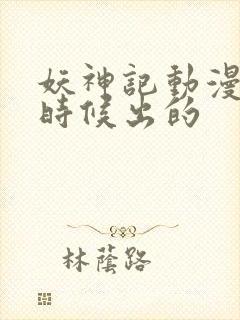 妖神記動漫
時候出的
林蔭路